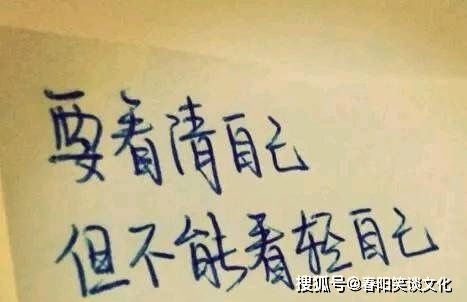 要看清自己
但不能看轻自己
搜狐号@春阳笑谈文化